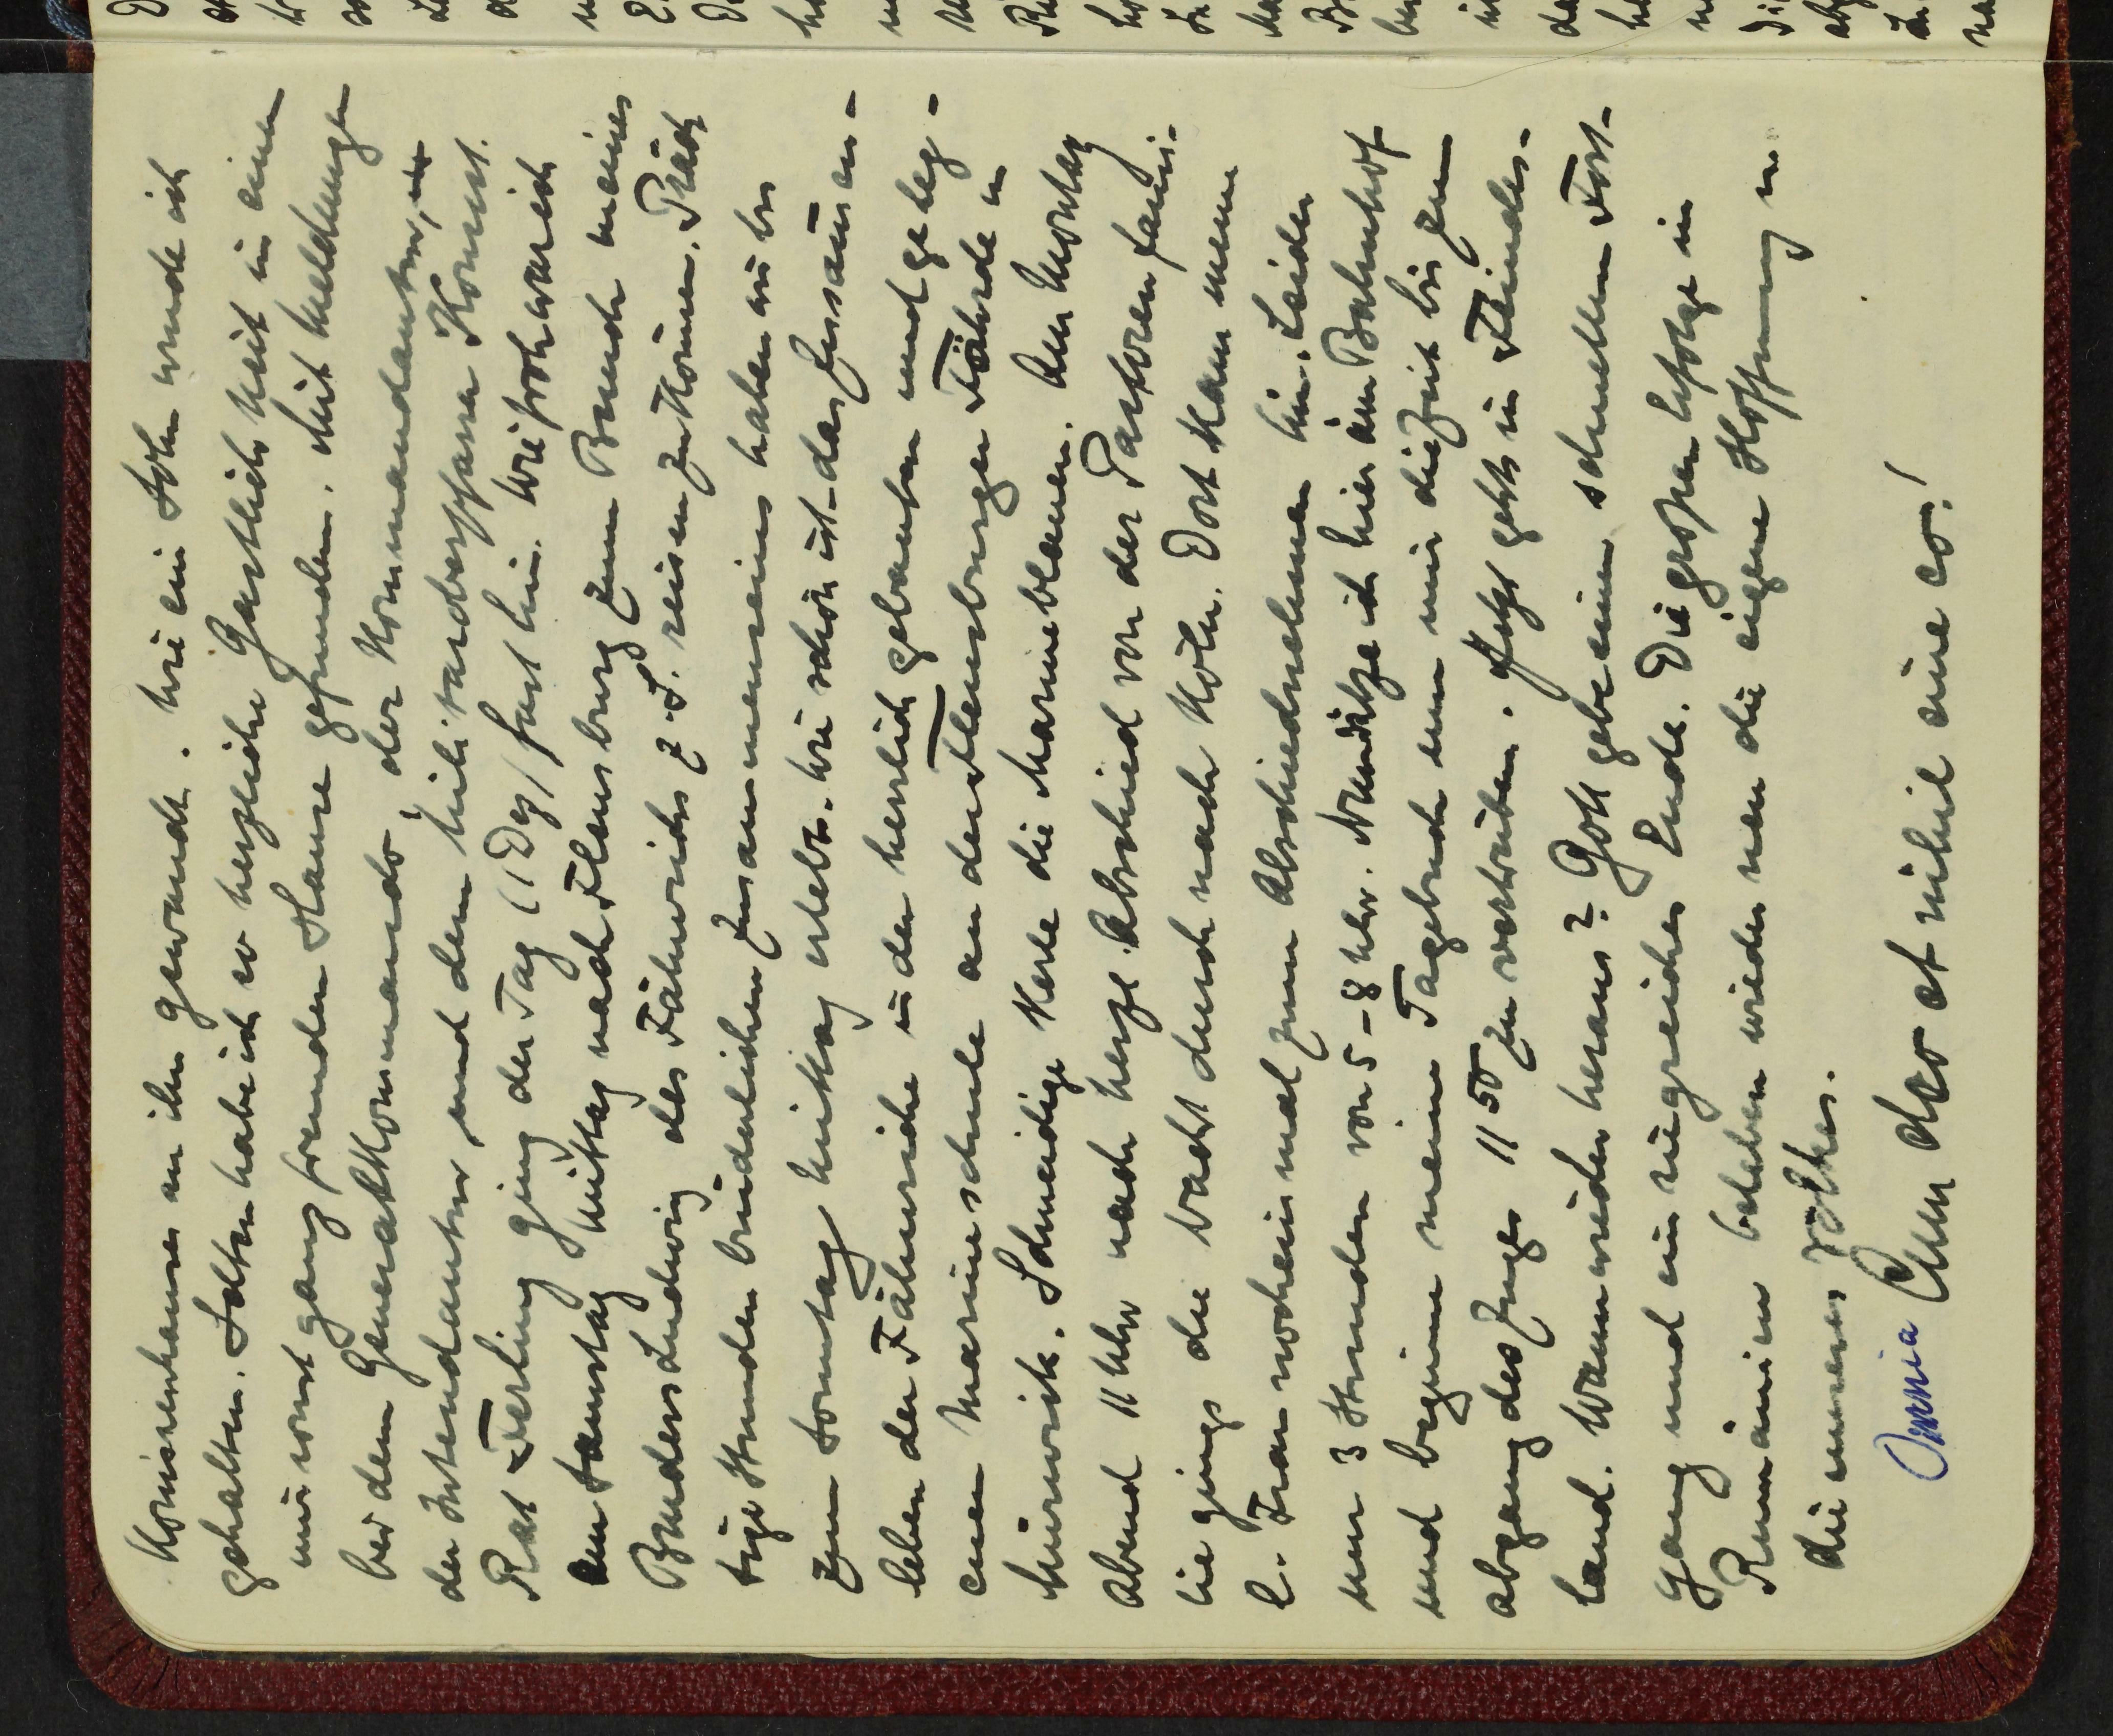 Konsistenhauses an ihn gewandt. Wie ein Sohn wurde ich
gehalten. Selten habe ich so herzliche Gastlichkeit in einem
mir sonst ganz fremden Hause gefunden. Mit Meldungen
bei dem Generalkommando, der Kommandantur,
der Intendantur und dem Militäroberpfarrer Konsist.
Rat Ferling ging der Tag (1 Dez) fast hin. Wie froh war ich
am Samstag Mittag nach Flensburg zum Besuch meines
Bruders Ludwig des Fähnrichs z. S. reisen zu können. Präch
tige Stunden brüderlichen Zusammenseins haben wir bis
zum Sonntag Mittag erlebt. Wie schön ist das Zusammen-
leben der Fähnriche in der herrlich gebauten und geleg-
enen Marineschule an der Flensburger Föhrde in
Mürwick. Schneidige Kerle die Marineblauen. Am Montag
Abend 11 Uhr nach herzl. Abschied von der Pastorenfami-
lie gings die Nacht durch nach Köln. Dort kam meine
l. Frau noch einmal zum Abschiednehmen hin. Leider
nur 3 Stunden von 5-8 Uhr. Nun sitze ich hier im Bahnhof
und beginne meine Tagebuch um mir die Zeit bis zum
Abgang des Zuges 11 50 zu vertreiben. Jetzt gehts in Feindes-
land. Wann wieder heraus? Gott gebe einen schnellen Fort-
gang und ein siegreiches Ende. Die großen Erfolge in
Rumänien beleben wieder neu die eigene Hoffnung u.
die unseres Volkes.
Omnia Cum deo et nihil sine eo!